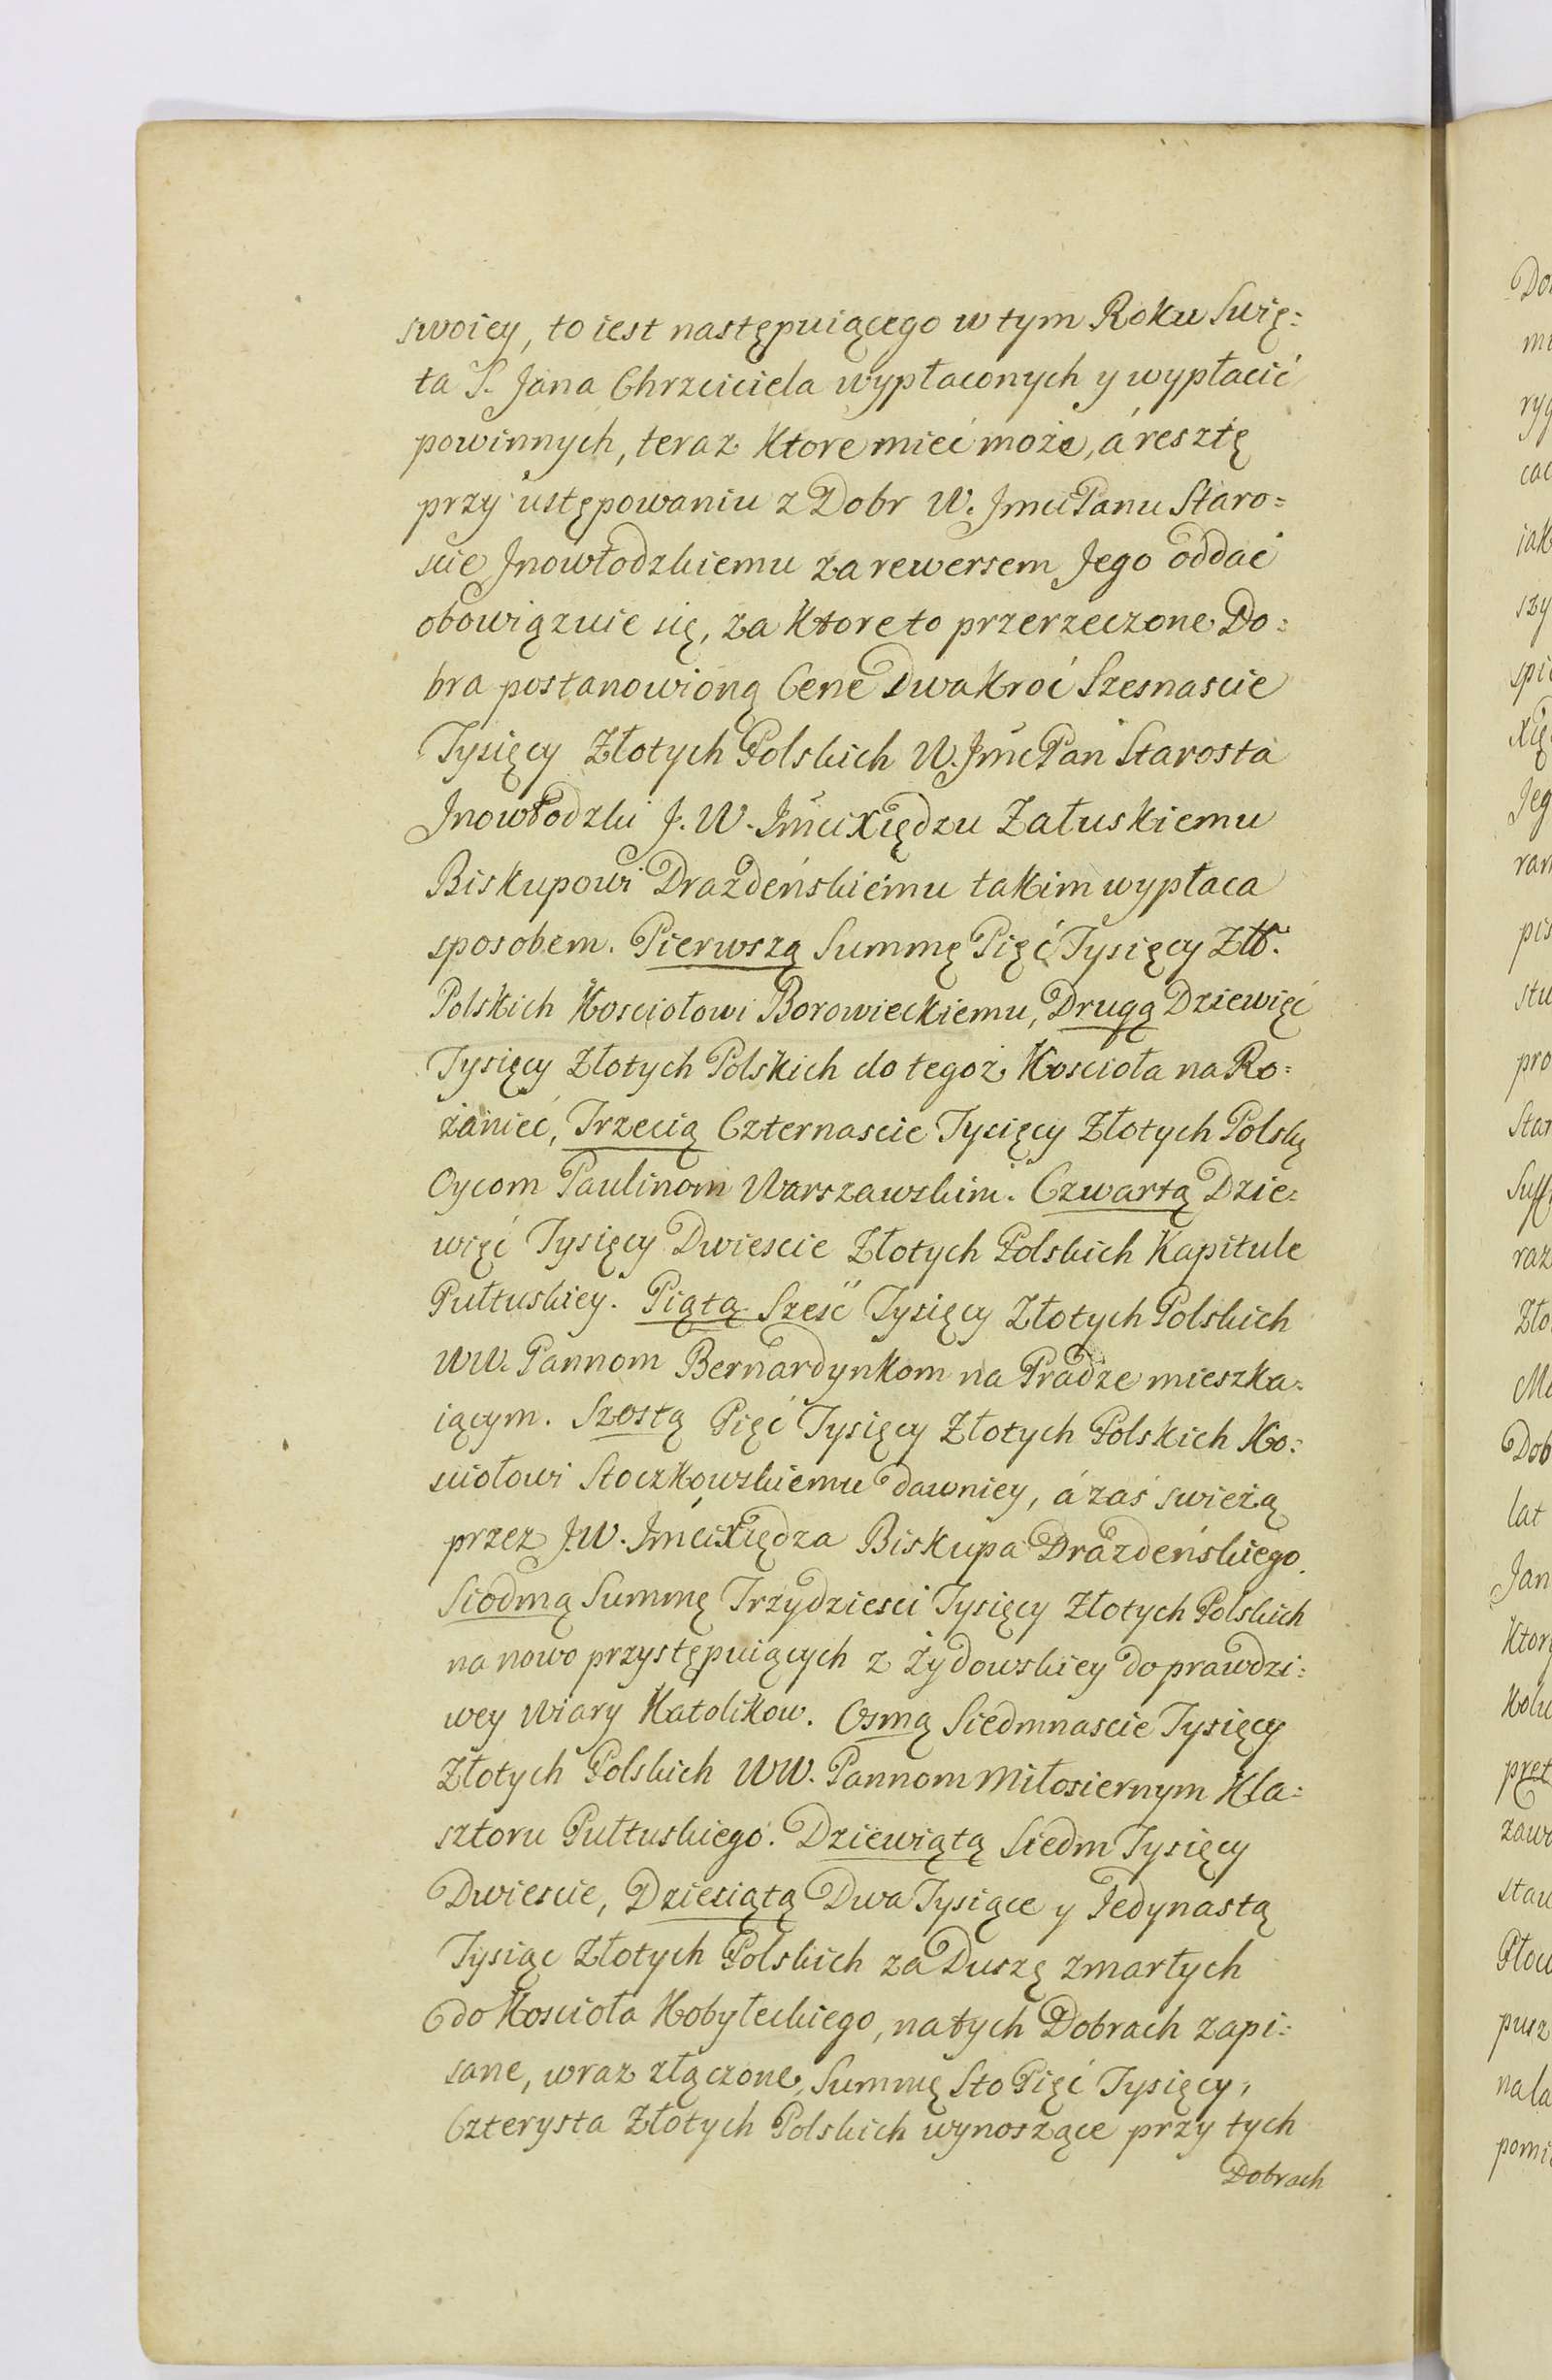 swoiey, to iest następuiącego w tym Roku Świę=
ta S. Jana Chrzciciela wypłaconych y wypłacić
powinnych, teraz ktore mieć może, á resztę
przy ustępowaniu z Dobr W. Jmci Panu Staro=
scie Jnowłodzkiemu za rewersem Jego oddać
obowiązuie się, za ktoreto przerzeczone Do=
bra postanowioną Cenę Dwakroć Szesnascie
Tysięcy Złotych Polskich W. Jmć Pan Starosta
Jnowłodzki J. W. Jmci Xiędzu Załuskiemu
Biskupowi Drazdeńskiemu takim wypłaca
sposobem. Pierwszą Summę Pięć Tysięcy Złł.
Polskich Kosciołowi Borowieckiemu, Drugą Dziewięć
Tysięcy Złotych Polskich do tegoż Kościoła na Ro=
żaniec, Trzecią Czternascie Tysięcy Złotych Polskĳ
Oycom Paulinom Warszawskim. Czwartą Dzie=
więć Tysięcy Dwiescie Złotych Polskich Kapitule
Pułtuskiey. Piątą Sześć Tysięcy Złotych Polskich
WW. Pannom Bernardynkom na Pradze mieszka=
iącym. Szostą Pięć Tysięcy Złotych Polskich Ko=
sciołowi Stoczkowskiemu dawniey, á zaś swieżą
przez J.W. Jmci Xiędza Biskupa Drazdeńskiego.
Siodmą Summę Trzydziesci Tysięcy Złotych Polskich
na nowo przystępuiących z Żydowskiey do prawdzi=
wey Wiary Katolikow. Osmą Siedmnascie Tysięcy
Złotych Polskich WW. Pannom Miłosiernym Kla=
sztoru Pułtuskiego. Dziewiątą Siedm Tysięcy
Dwiescie, Dziesiątą Dwa Tysiące y Jedynastą
Tysiąc Złotych Polskich za Duszę zmarłych
do Kościoła Kobyłeckiego, na tych Dobrach zapi=
sane, wraz złączone, Summę Sto Pięć Tysięcy,
Czterysta Złotych Polskich wynoszące przy tych
Dobrach